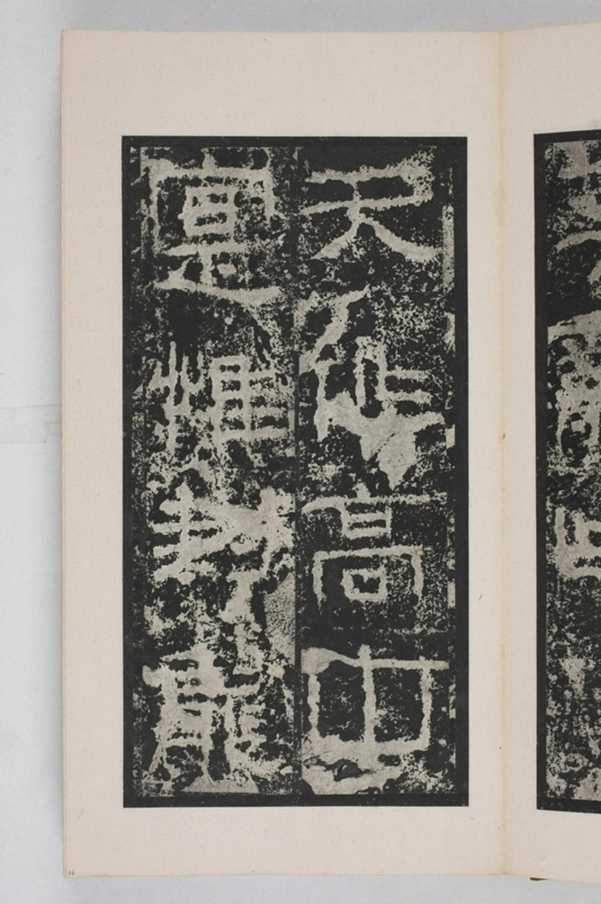 天作高山
寔惟封龍